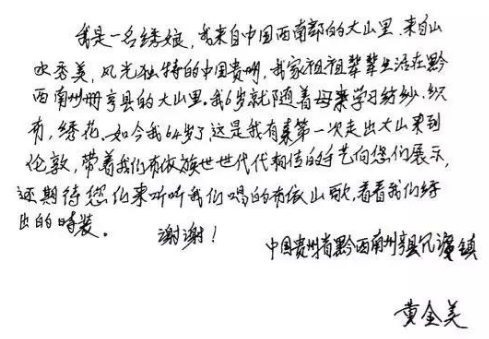 我是一名绣娘，我来自中国西南部的大山里，来自山
水秀美，风光独特的中国贵州，我家祖祖辈辈生活在黔
西南州册亨县的大山里。我6岁就随着母亲学习纺纱、织
布，绣花。如今我64岁了，这是我有来第一次走出大山来到
伦敦，带着我们布依族世世代代相传的手艺向您们展示，
还期待您们来听听我们唱的布依山歌，看看我们绣
出的時装。 谢谢！
中国贵州省黔西南州亨县冗渡镇
黄金美